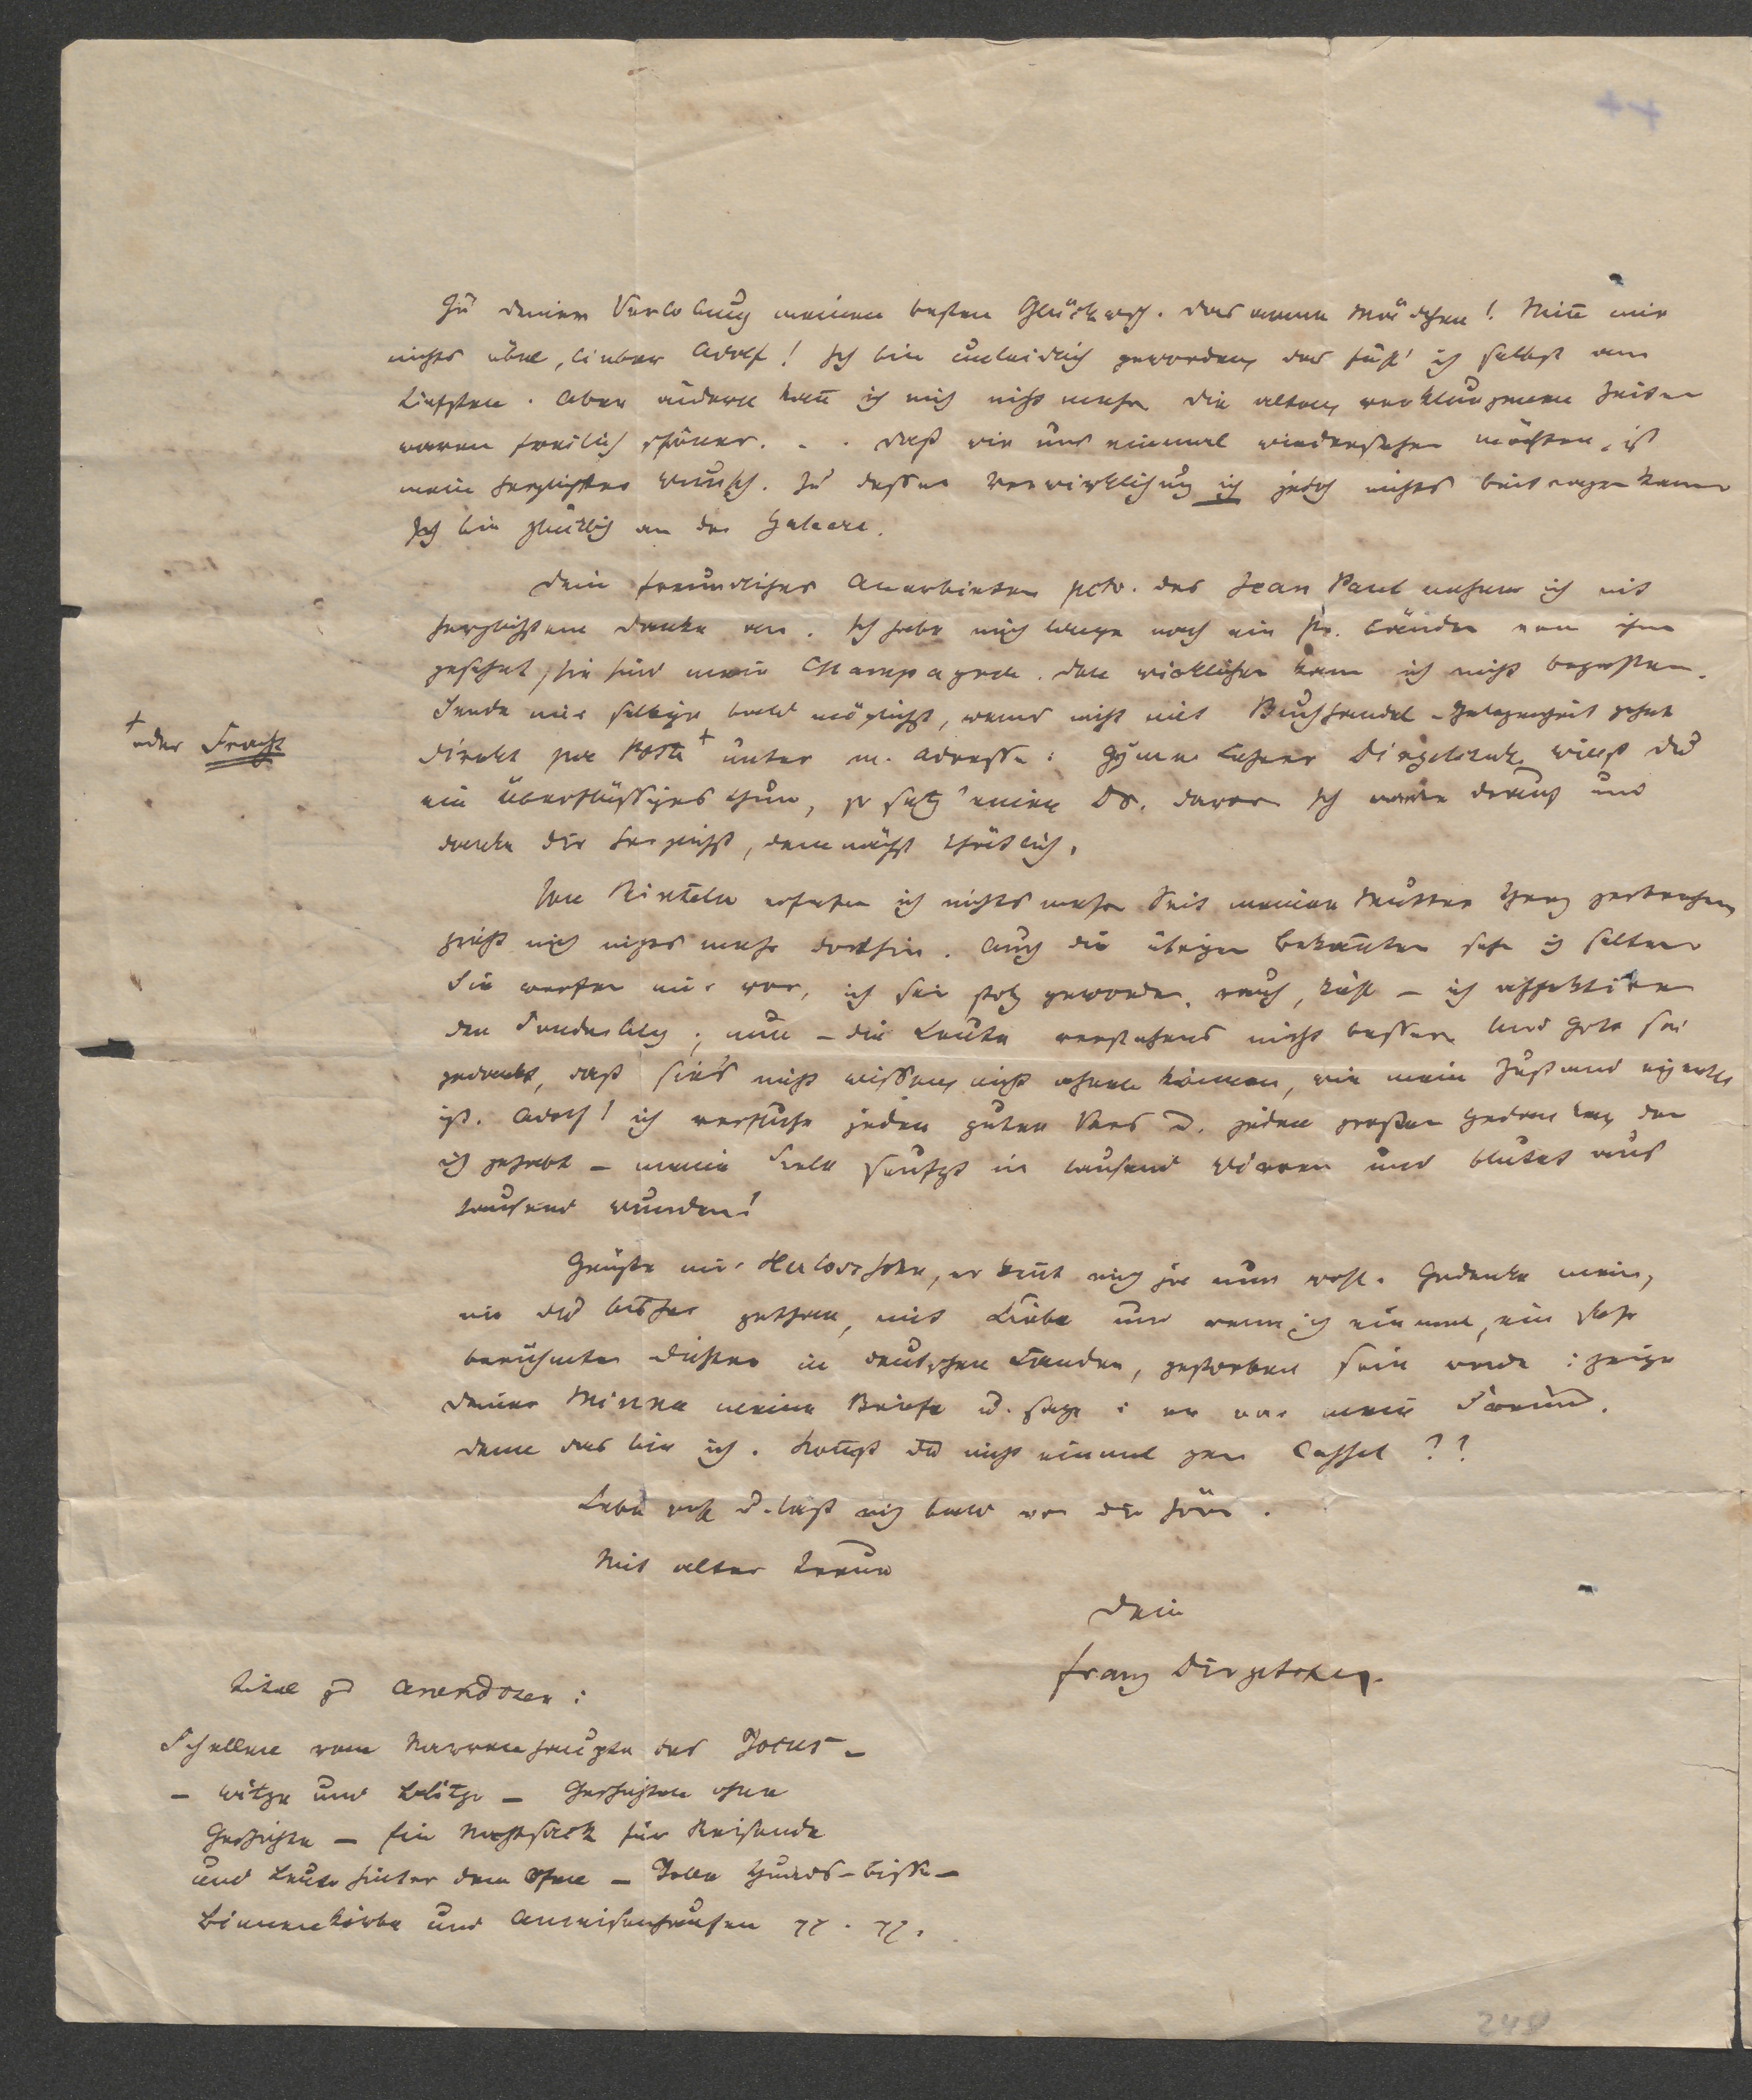 Zu deiner Verlobung meinen besten Glückwsch. Das arme Mädchen! Nim̅ mir
nichts übel, lieber Adolf! Ich bin unleidlich geworden, das fühl' ich selbst am
Tiefsten. Aber ändern kan̅ ich mich nicht mehr. Die alten, verklungenen Zeiten
waren freilich schöner. . . Daß wir uns einmal wiedersehen möchten, ist
mein herzlichster Wunsch. Zu dessen Verwirklichung ich jedoch nichts beitragen kann
Ich bin glücklich an der Galeere.
Dein freundliches Anerbieten pcto. des Jean Paul nehme ich mit
herzlichstem Danke an. Ich habe mich lange nach ein Pr. Bänden von ihm
gesehnt, sie sind mein Champagner. Den wirklichen kann ich nicht bezahlen.
Sende mir selbige bald möglichst, wenns nicht mit Buchhandel-Gelegenheit gehet
direkt per Post + unter m. Adresse: Gymn. Lehrer Dingelstedt. Willst du
ein Überflüssiges thun, so setz' einen Dr. davor. Ich warte darauf und
danke dir herzlichst, demnächst thätlich.
+ oder Fracht
Von Rinteln erfahre ich nichts mehr. Seit meiner Mutter Herz gebrochen,
zieht mich nichts mehr dorthin. Auch die übrigen Bekan̅ten sehe ich selten
Sie werfen mir vor, ich sei stolz geworden, rauh, kühl – ich affektire
den Sonderling; nun – die Leute verstehens nicht besser. Und Gott sei
gedankt, daß sie's nicht wissen, nicht ahnen können, wie mein Zustand eigentl.
ist. Adolf! ich verfluche jeden guten Vers u. jeden großen Gedanken, den
ich gehabt – meine Seele seufzt in tausend Wirren und blutet aus
tausend Wunden!
Grüße mir Herloßsohn, er ken̅t mich ja nun wohl. Gedenke mein,
wie du bisher gethan, mit Liebe und wenn ich einmal, ein sehr
berühmter Dichter in deutschen Landen, gestorben sein werde: zeige
deiner Minna meine Briefe u. sage: er war mein Freund.
Denn das bin ich. Kom̅st du nicht einmal gen Cassel??
Lebe wohl u. laß mich bald von dir hören.
Mit alter Treue
Dein
Franz Dingelstedt.
Titel zu Anekdoten:
Schellen vom Narrenhaupte des Jocus –
– Witze und Blitze – Geschichten ohne
Geschichte – Ein Nachtsack für Reisende
und Leute hinter dem Ofen – Tolle Hunds-bisse –
Bienenkörbe und Ameisenhaufen pp. pp.
248